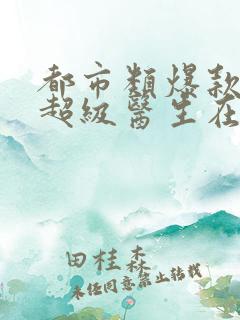 都市類爆款
超級醫生在
田桂森
未任同意禁止转载